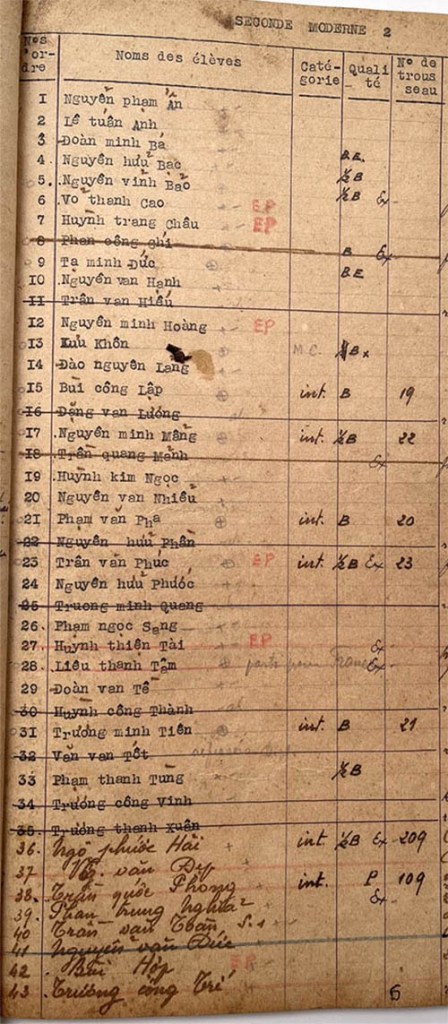 SECONDE MODERNE 2
Nos d'or- dre Noms des élèves Caté- gorie Quali té N° de trous seau
1 Nguyễn phạm Ấn
2 Lê tuấn Anh
3 Đoàn minh Bá
4. Nguyễn hưu Bạc B.E.
5. Nguyễn vinh Bảo ½B
6 Võ thanh Cao EP ½B Ex
7 Huỳnh trang Châu EP
8 Phan công ghi
9 Tạ minh Đức B Ex
10 Nguyễn van Hạnh B E
11 Trần van Hiếu
12 Nguyễn minh Hoàng EP
13 Lưu Khôn M.C. ½B x
14 Đào nguyên Lang
15 Bùi công Lập int. B 19
16 Đặng van Lương
17 Nguyễn minh Mẫng int. ½B 22
18 Trần quang Mành
19 Huỳnh kim Ngọc Ex
20 Nguyễn van Nhiều
21 Phạm văn Pha int. B 20
22 Nguyễn hưu Phần
23 Trần văn Phúc EP int. ½B Ex 23
24 Nguyễn hưu Phước
25 Truong minh Quang
26. Phạm ngọc Sang
27. Huỳnh thiện Tài EP Ex
28. Liêu thanh Tâm parti pour France Ex
29 Đoàn van Tề
30 Huỳnh công Thành
31 Trương minh Tiên int. B 21
32 Văn van Tốt
33 Phạm thanh Tùng ½B
34 Trương công Vinh
35. Trương thanh Xuân
36. Ngô phước Hải int ½B Ex 209
37 Ng. văn Đẹp
38. Trần quốc Phong int. P 109
39. Phan trung Nghĩa Ex
40 Trần van S.1
41 Nguyễn văn Đức
42 Bùi Hợp EP
43 Trương công Trí 6